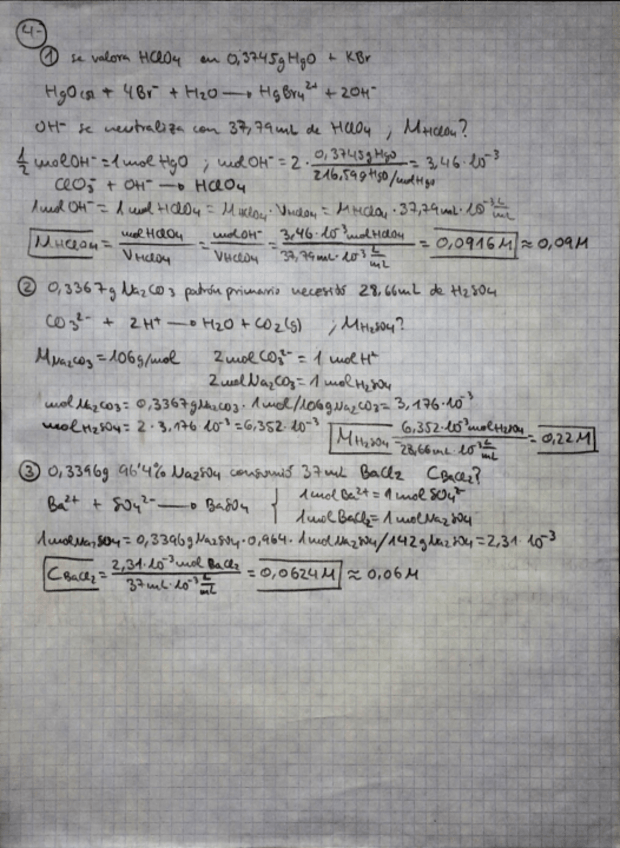 4-
① se valora HClO4 en 0,3745g HgO + KBr
HgO(s) + 4Br⁻ + H2O → HgBr4²⁺ + 2OH⁻
OH⁻ se neutraliza con 37,79mL de HClO4 ; M HClO4?
1/2 mol OH⁻ = 1 mol HgO ; mol OH⁻ = 2 · 0,3745g HgO / 216,59g HgO/mol HgO = 3,46·10⁻³
ClO3⁻ + OH⁻ → HClO4
1 mol OH⁻ = 1 mol HClO4 = M HClO4 · V HClO4 = M HClO4 · 37,79mL · 10⁻³ L/mL
M HClO4 = mol HClO4 / V HClO4 = mol OH⁻ / V HClO4 = 3,46·10⁻³ mol HClO4 / 37,79mL·10⁻³ L/mL = 0,0916M ≈ 0,09M
② 0,3367g Na2CO3 patrón primario necesitó 28,66mL de H2SO4
CO3²⁻ + 2H⁺ → H2O + CO2(g) ; M H2SO4?
M Na2CO3 = 106g/mol 2 mol CO3²⁻ = 1 mol H⁺
2 mol Na2CO3 = 1 mol H2SO4
mol Na2CO3 = 0,3367g Na2CO3 · 1 mol/106g Na2CO3 = 3,176·10⁻³
mol H2SO4 = 2 · 3,176·10⁻³ = 6,352·10⁻³ M H2SO4 = 6,352·10⁻³ mol H2SO4 / 28,66mL·10⁻³ L/mL = 0,22M
③ 0,3396g 96'4% Na2SO4 consumió 37mL BaCl2 C BaCl2?
Ba²⁺ + SO4²⁻ → BaSO4 { 1 mol Ba²⁺ = 1 mol SO4²⁻
1 mol BaCl2 = 1 mol Na2SO4
1 mol Na2SO4 = 0,3396g Na2SO4 · 0,964 · 1 mol Na2SO4/142g Na2SO4 = 2,31·10⁻³
C BaCl2 = 2,31·10⁻³ mol BaCl2 / 37mL·10⁻³ L/mL = 0,0624M ≈ 0,06M